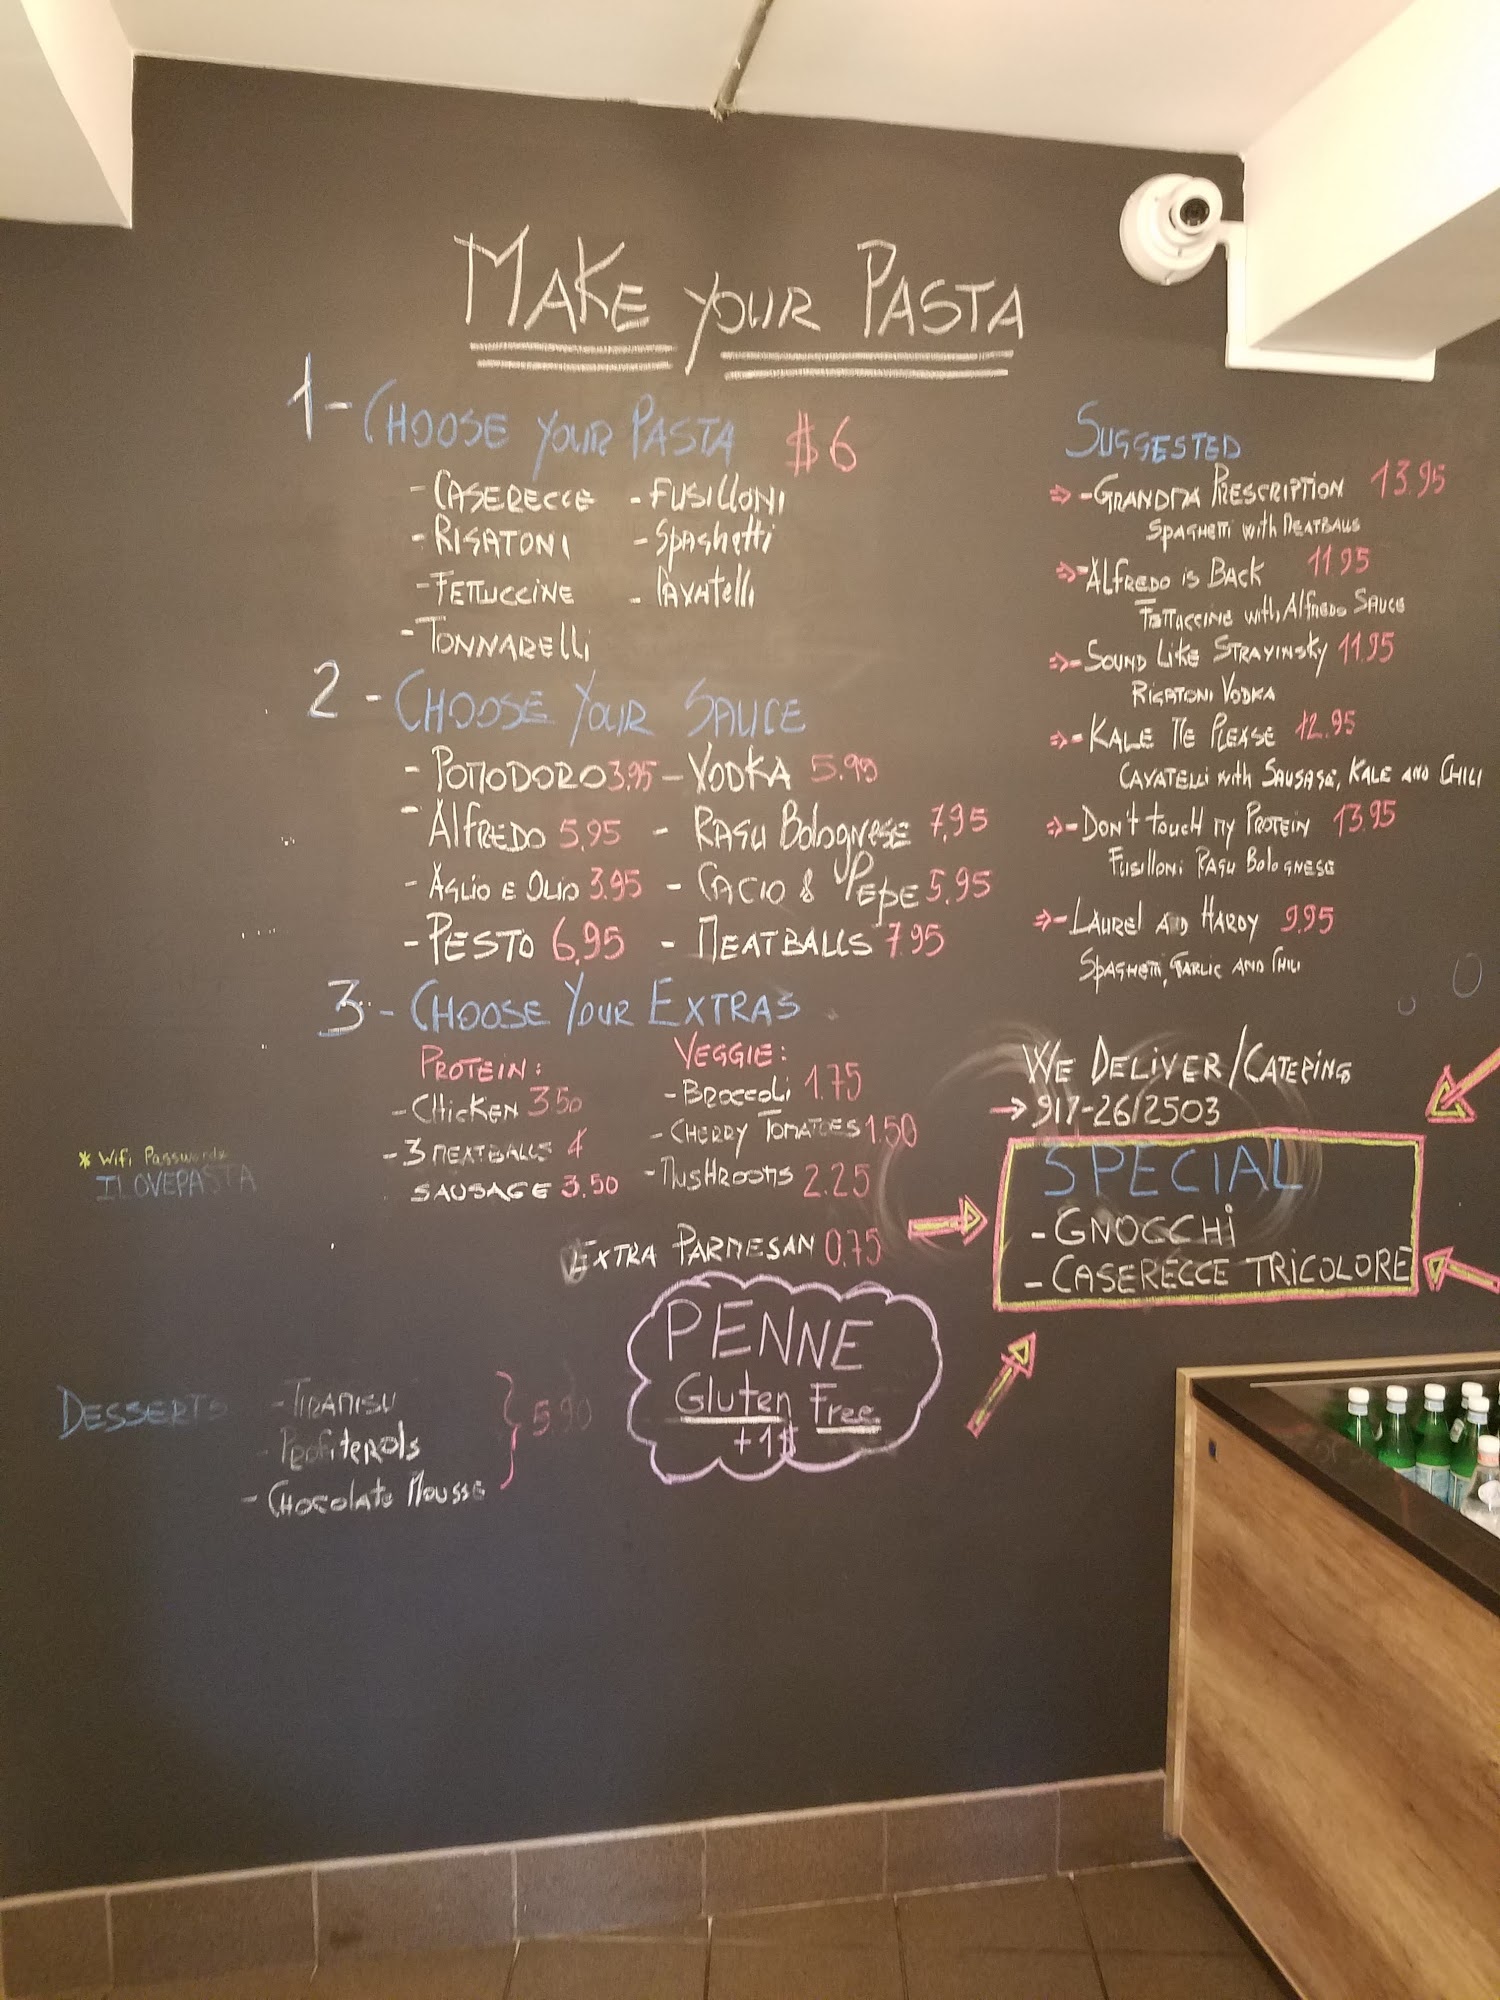 MAKE YOUR PASTA
1- CHOOSE YOUR PASTA $6
- CASERECCE - FUSILLONI
- RIGATONI - SPAGHETTI
- FETTUCCINE - CAVATELLI
- TONNARELLI
2 - CHOOSE YOUR SAUCE
- POMODORO 3.95 - VODKA 5.90
- ALFREDO 5.95 - RAGU BOLOGNESE 7.95
- AGLIO E OLIO 3.95 - CACIO & PEPE 5.95
- PESTO 6.95 - MEATBALLS 7.95
3 - CHOOSE YOUR EXTRAS
PROTEIN: VEGGIE:
- CHICKEN 3.50 - BROCCOLI 1.75
- 3 MEATBALLS 4 - CHERRY TOMATOES 1.50
SAUSAGE 3.50 - MUSHROOMS 2.25
EXTRA PARMESAN 0.75
PENNE
Gluten Free
+1$
* Wifi Password
ILOVEPASTA
DESSERTS - TIRAMISU 5.90
- PROFITEROLS
- CHOCOLATE MOUSSE
SUGGESTED
- GRANDMA PRESCRIPTION 13.95
SPAGHETTI WITH MEATBALLS
- ALFREDO IS BACK 11.95
FETTUCCINE WITH ALFREDO SAUCE
- SOUND LIKE STRAVINSKY 11.95
RIGATONI VODKA
- KALE ME PLEASE 12.95
CAVATELLI WITH SAUSAGE, KALE AND CHILI
- DON'T TOUCH MY PROTEIN 13.95
FUSILLONI RAGU BOLOGNESE
- LAUREL AND HARDY 9.95
SPAGHETTI, GARLIC AND CHILI
WE DELIVER/CATERING
917-26/2503
SPECIAL
- GNOCCHI
- CASERECCE TRICOLORE